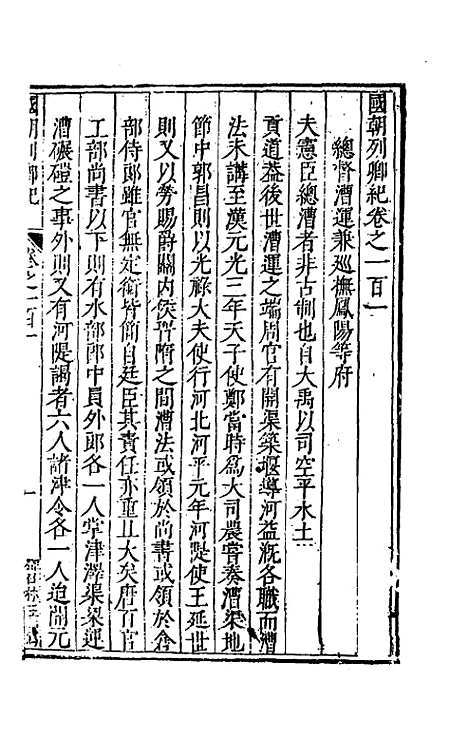 國朝列卿紀卷之一百一
總督漕運兼巡撫鳳陽等府
夫憲臣總漕者非古制也自大禹以司空平水土
貢道益後世漕運之端周官有開渠築堰導河益溉各職而漕
法未講至漢元光三年天子使鄭當時為大司農嘗奏漕渠地
節中郭昌則以光祿大夫使行河北河平元年河隄使王延世
則又以勞賜爵關內侯晋隋之間漕法或領於尚書或領於倉
部侍郎雖官無定銜皆簡自廷臣其責任亦重且大矣唐百官
工部尚書以下則有水部郎中員外郎各一人掌津澤渠梁運
漕碾磑之事外則又有河隄謁者六人諸津令各一人迨開元
國朝列卿紀
卷之一百一
一